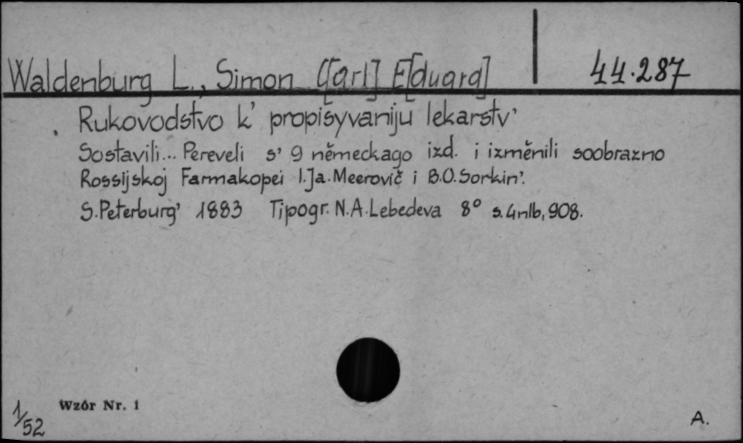 Waldenburg L., Simon C[arl] E[duard] 44.287
Rukovodstvo k' propisyvaniju lekarstv'
Sostavili... Pereveli s' 9 německago izd. i izměnili soobrazno
Rossijskoj Farmakopei I.Ja.Meerovič i B.O.Sorkin'.
S.Peterburg' 1883 Tipogr. N.A.Lebedeva 8° s.4nlb, 908.
Wzór Nr. 1
1/52
A.